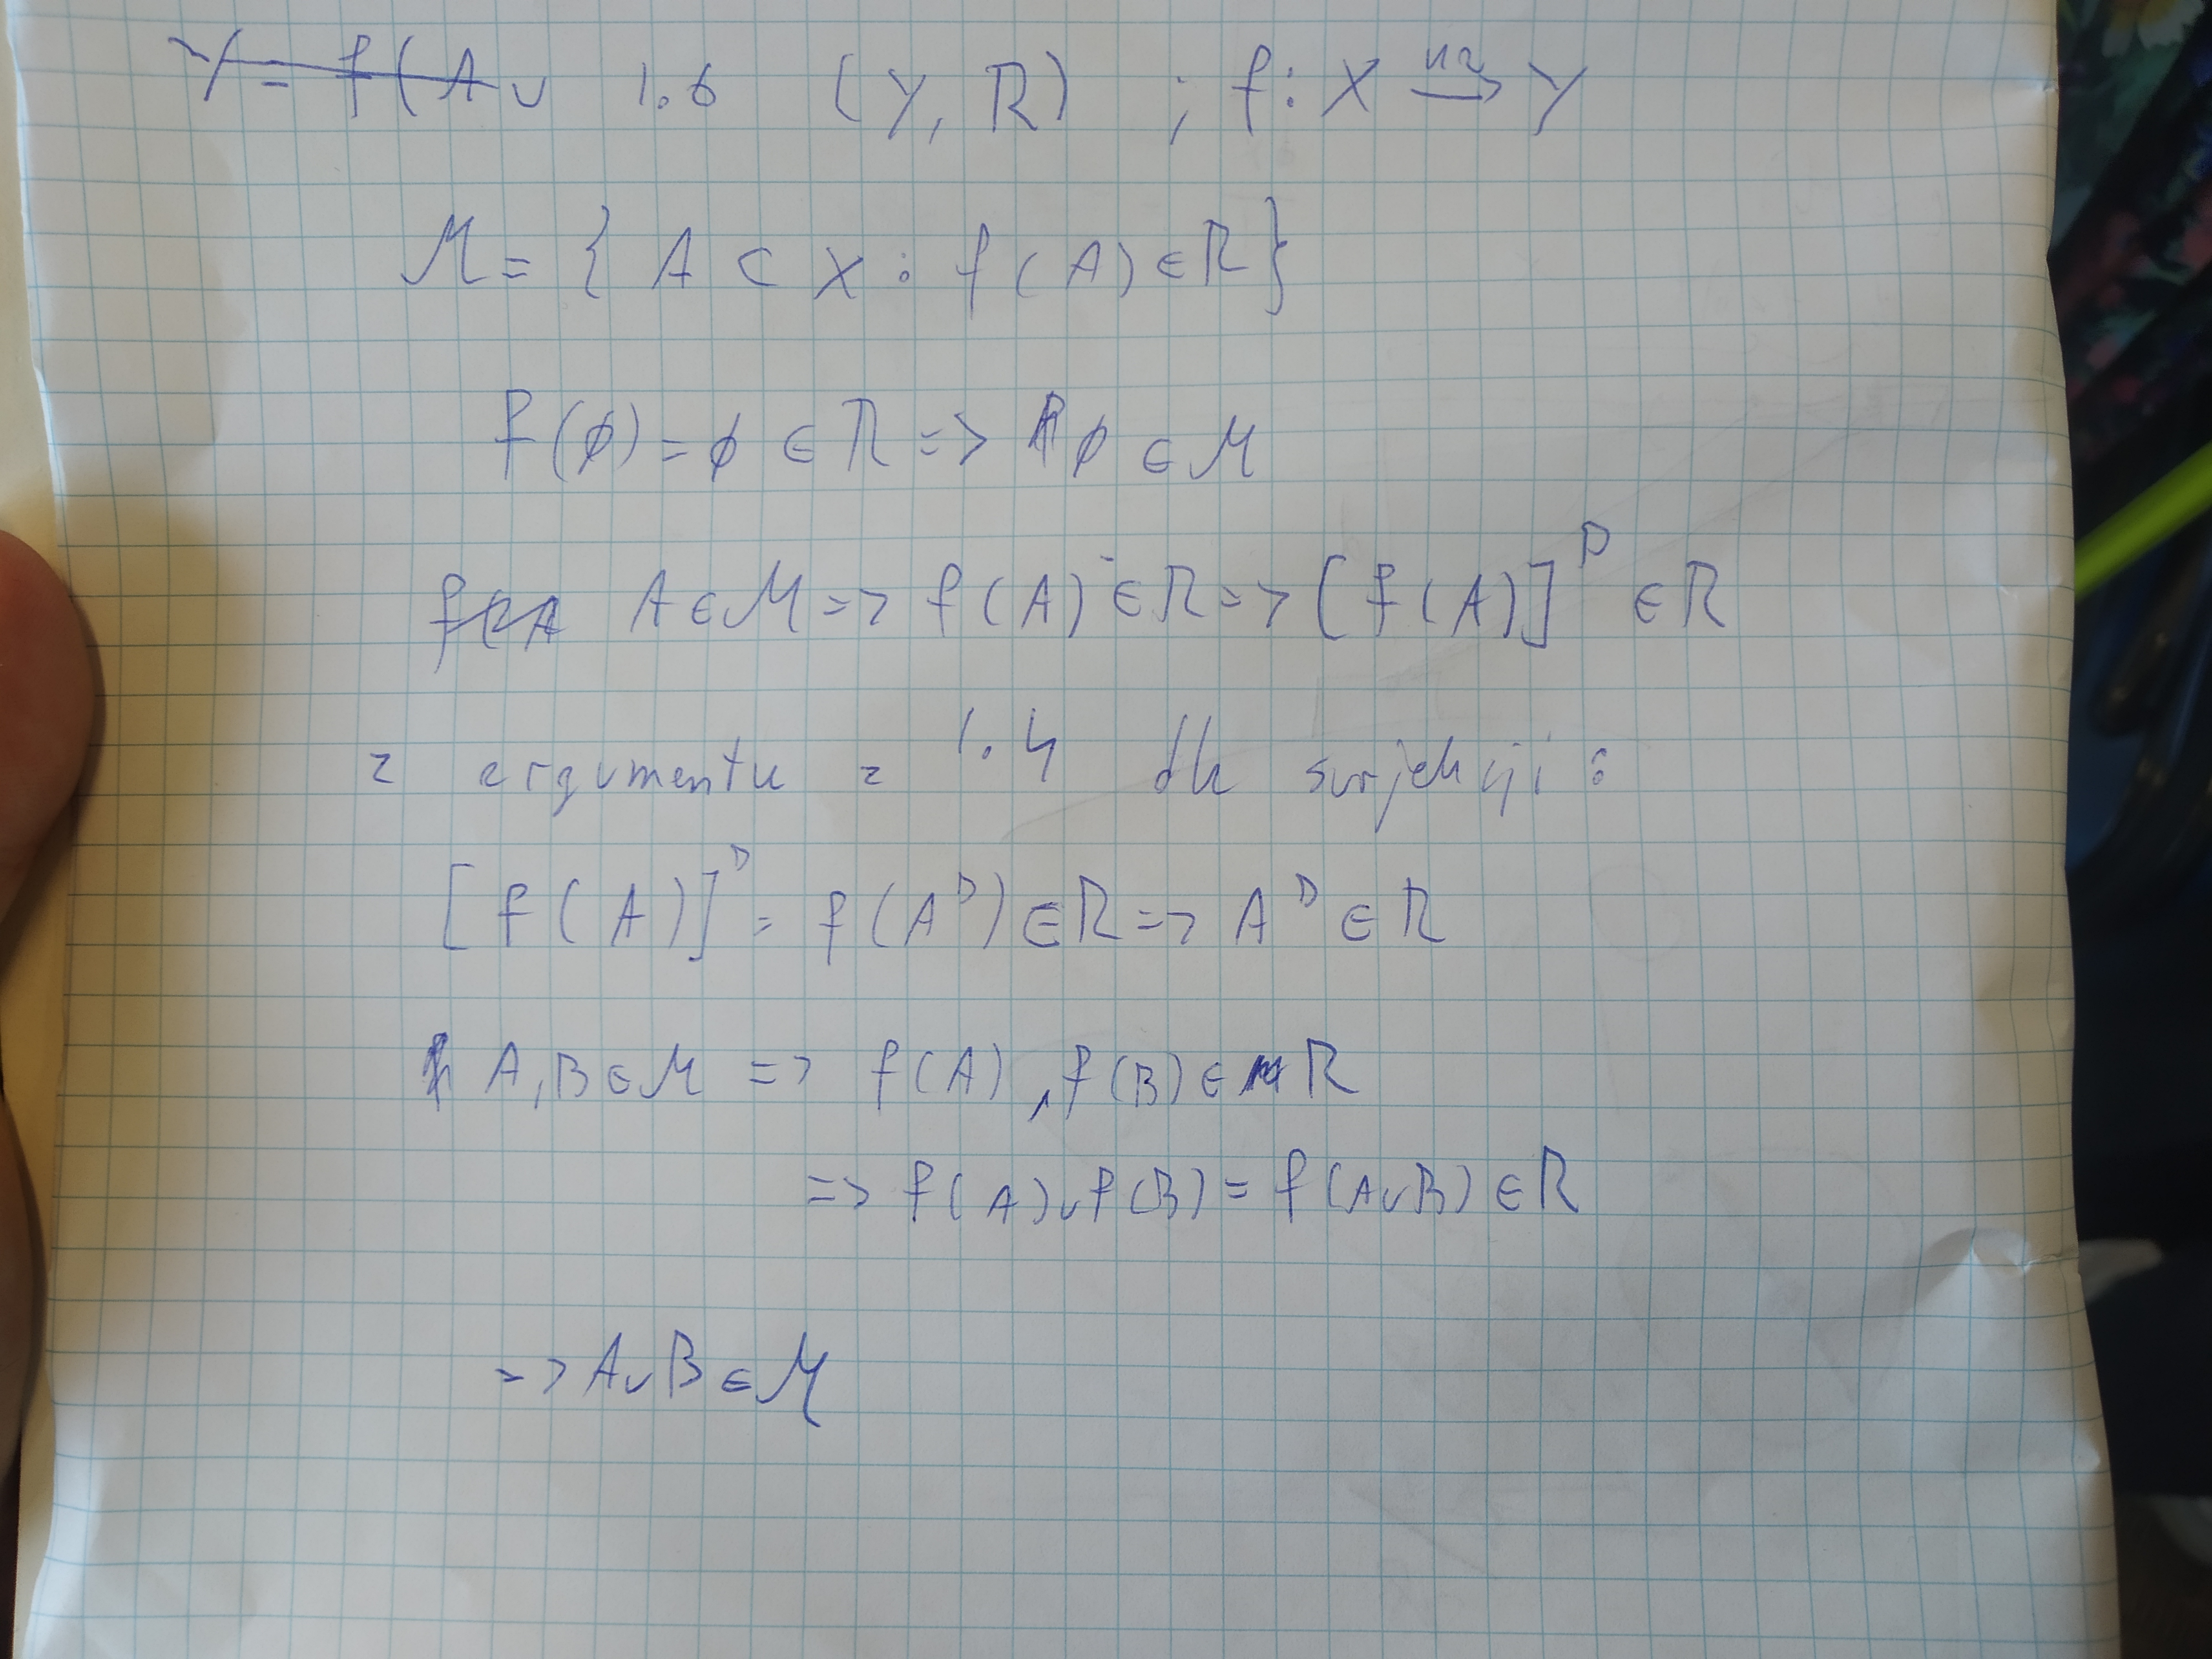 Y = f(A∪ 1.6 (Y, R) ; f: X na→ Y
M = { A ⊂ X : f(A) ∈ R }
f(∅) = ∅ ∈ R => ∅ ∈ M
f(A A ∈ M => f(A) ∈ R => [f(A)]ᴰ ∈ R
z argumentu z 1.4 dla surjekcji :
[f(A)]ᴰ = f(Aᴰ) ∈ R => Aᴰ ∈ R
A, B ∈ M => f(A), f(B) ∈ R
=> f(A) ∪ f(B) = f(A∪B) ∈ R
=> A∪B ∈ M